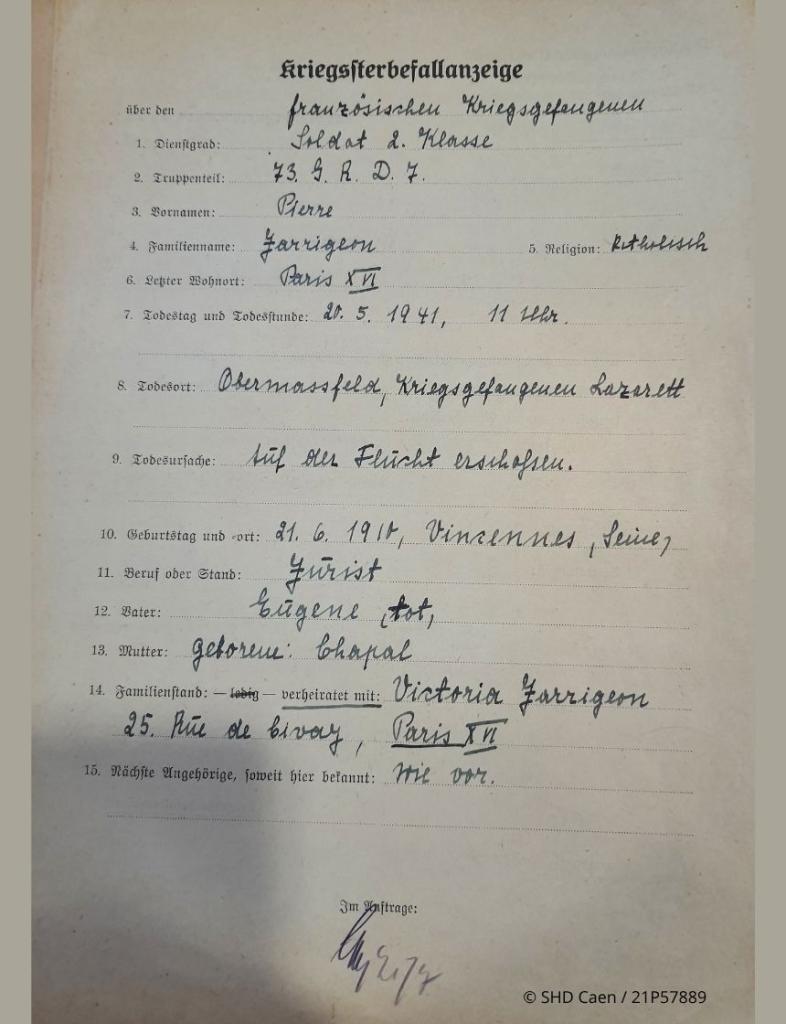 Kriegssterbefallanzeige
über den französischen Kriegsgefangenen
1. Dienstgrad: Soldat 2. Klasse
2. Truppenteil: 73. G. R. D. 7.
3. Vornamen: Pierre
4. Familienname: Jarrigeon 5. Religion: katholisch
6. Letzter Wohnort: Paris XVI
7. Todestag und Todesstunde: 20. 5. 1941, 11 Uhr.
8. Todesort: Obermassfeld, Kriegsgefangenen Lazarett
9. Todesursache: Auf der Flucht erschossen.
10. Geburtstag und -ort: 21. 6. 1910, Vincennes, Seine,
11. Beruf oder Stand: Jurist
12. Vater: Eugene, tot,
13. Mutter: geborene: Chapal
14. Familienstand: — ledig — verheiratet mit: Victoria Jarrigeon
25. Rue de Civay, Paris XVI
15. Nächste Angehörige, soweit hier bekannt: wie vor.
Im Auftrage:
© SHD Caen / 21P57889